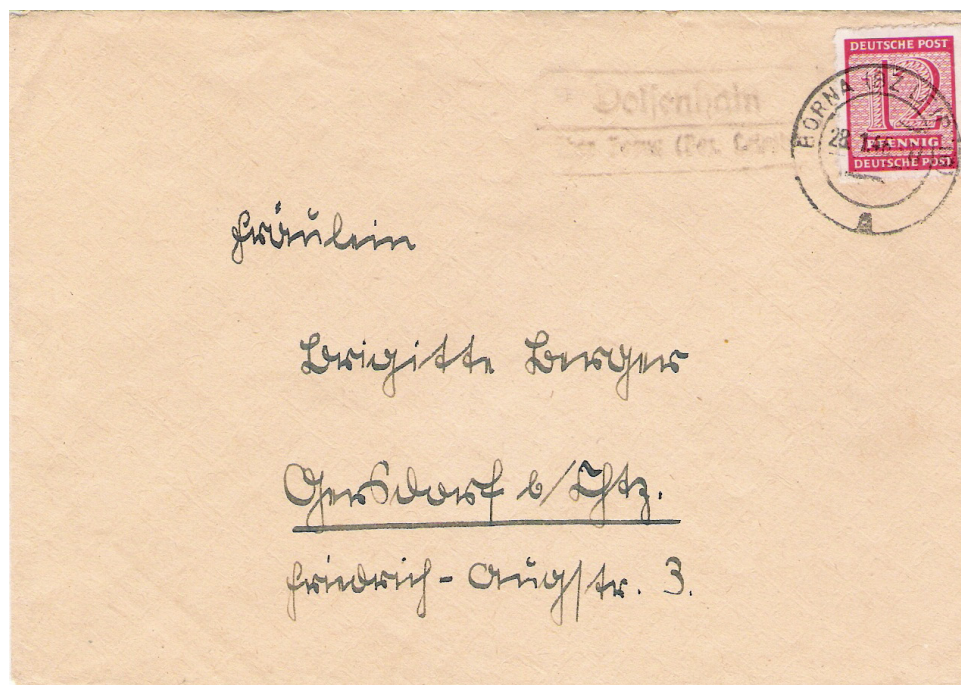 DEUTSCHE POST
12
PFENNIG
DEUTSCHE POST
BORNA
28. 1.
A
Dolsenhain
über Borna (Bez.
Fräulein
Brigitte Berger
Gersdorf b/Chtz.
Friedrich-Augstr. 3.